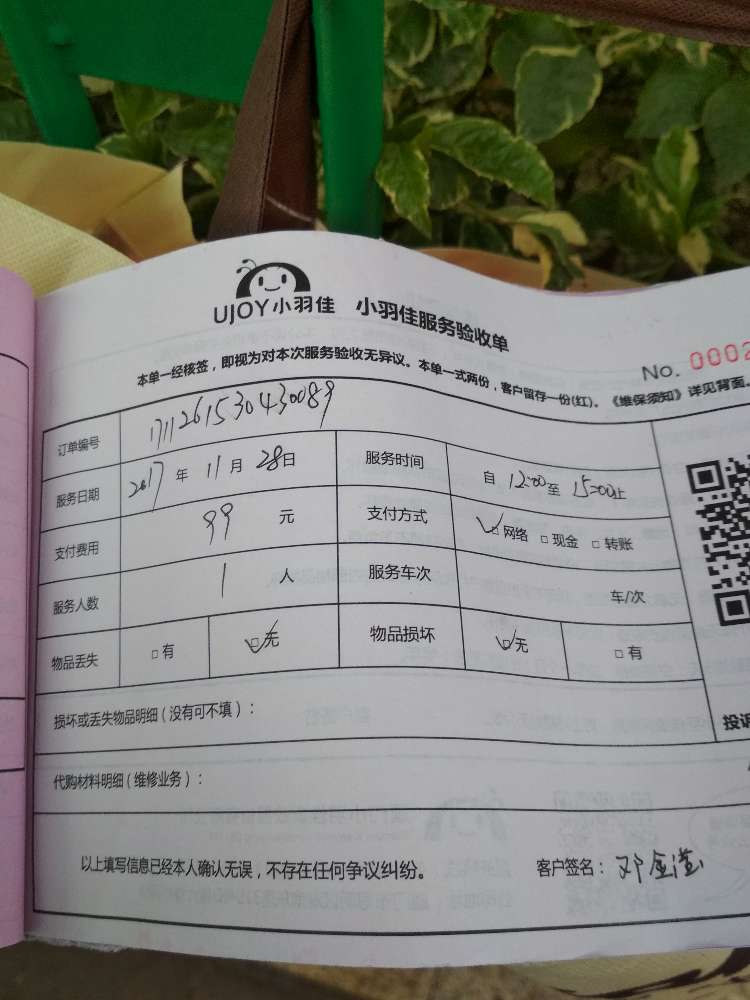 UJOY小羽佳 小羽佳服务验收单
本单一经核签，即视为对本次服务验收无异议。本单一式两份，客户留存一份(红)。《维保须知》详见背面。
No. 0002
订单编号 1711261530430089
服务日期 2017 年 11 月 28 日 服务时间 自 12:00 至 15:00 止
支付费用 99 元 支付方式 ☑网络 □现金 □转账
服务人数 1 人 服务车次 车/次
物品丢失 □有 ☑无 物品损坏 ☑无 □有
损坏或丢失物品明细（没有可不填）：
投诉
代购材料明细（维修业务）：
以上填写信息已经本人确认无误，不存在任何争议纠纷。 客户签名：邓金滢